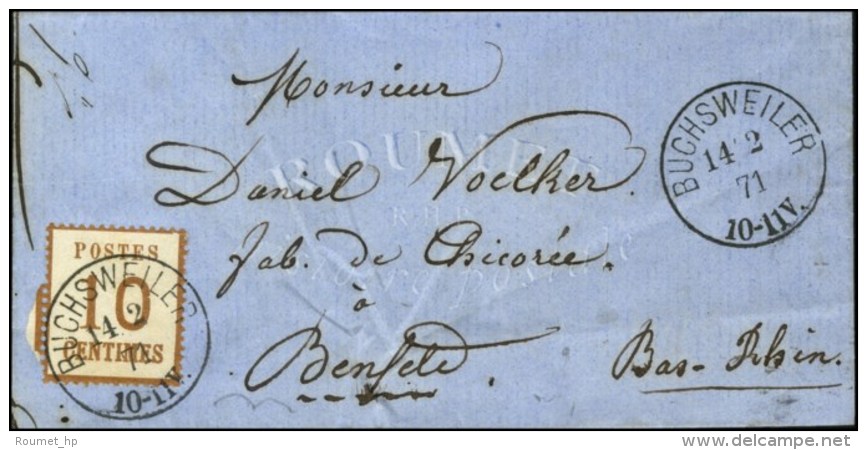 Monsieur
Daniel Voelker.
fab. de Chicorée.
à
Benfeld
Bas-Rhin.
BUCHSWEILER
14 2
71
10-11V.
POSTES
10
CENTIMES
BUCHSWEILER
14 2
71
10-11V.
ROUMET
Histoire postale
Roumet_hp
www.delcampe.net